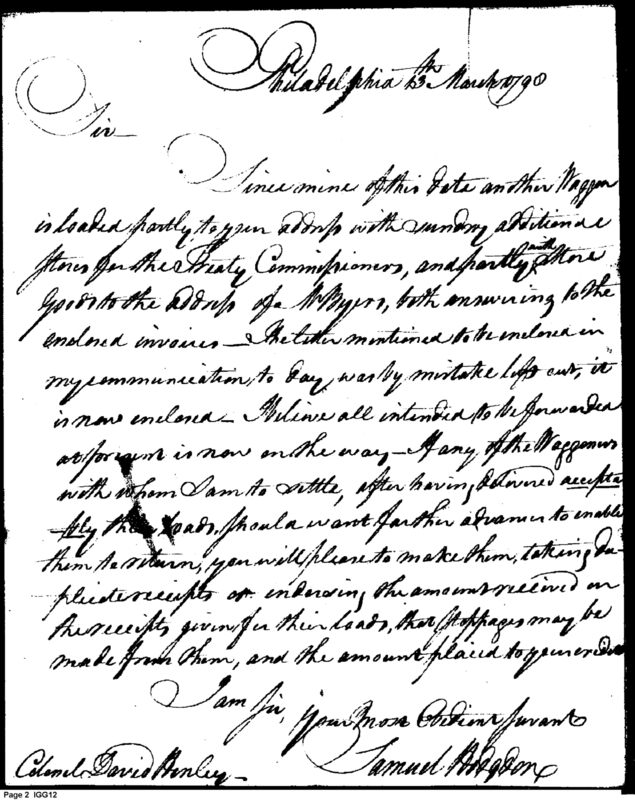 Philadelphia 13th March 1798
Sir—
Since mine of this date another Waggon
is loaded partly to your address with sundry additional
Stores for the Treaty Commissioners, and partly with Store
Goods to the address of a Mr Byers, both answering to the
enclosed invoices — The letter mentioned to be enclosed in
my communication, to day, was by mistake left out, it
is now enclosed — I believe all intended to be forwarded
at present is now on the way — If any of the Waggoners
with whom I am to settle, after having delivered accepta
bly their loads, should want further advances to enable
them to return, you will please to make them, taking du-
plicate receipts or endorsing the amount received on
the receipts given for their loads, that stoppages may be
made from them, and the amount placed to your credit
I am Sir,
your most Obedient Servant
Samuel Hodgdon
Colonel David Henley—
Page 2 IGG12